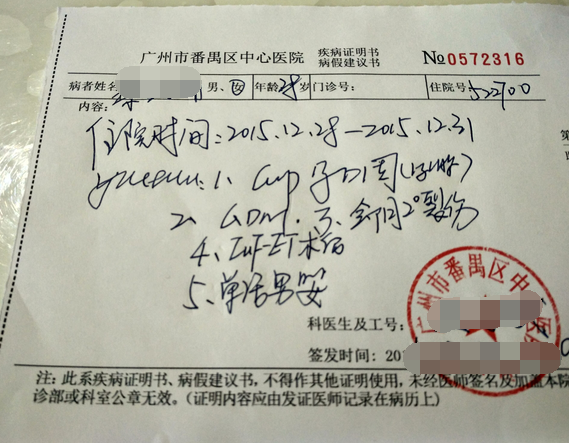 广州市番禺区中心医院 疾病证明书 病假建议书 №0572316
病者姓名 男、女 年龄28岁 门诊号: 住院号522700
内容:
住院时间:2015.12.28—2015.12.31
1、G1P1 孕 周
2、GDM. 3、会阴2°裂伤
4、IVF-ET术后
5、单活男婴
科医生及工号:
签发时间:201
注:此系疾病证明书、病假建议书,不得作其他证明使用,未经医师签名及加盖本院
诊部或科室公章无效。(证明内容应由发证医师记录在病历上)
广州市番禺区中